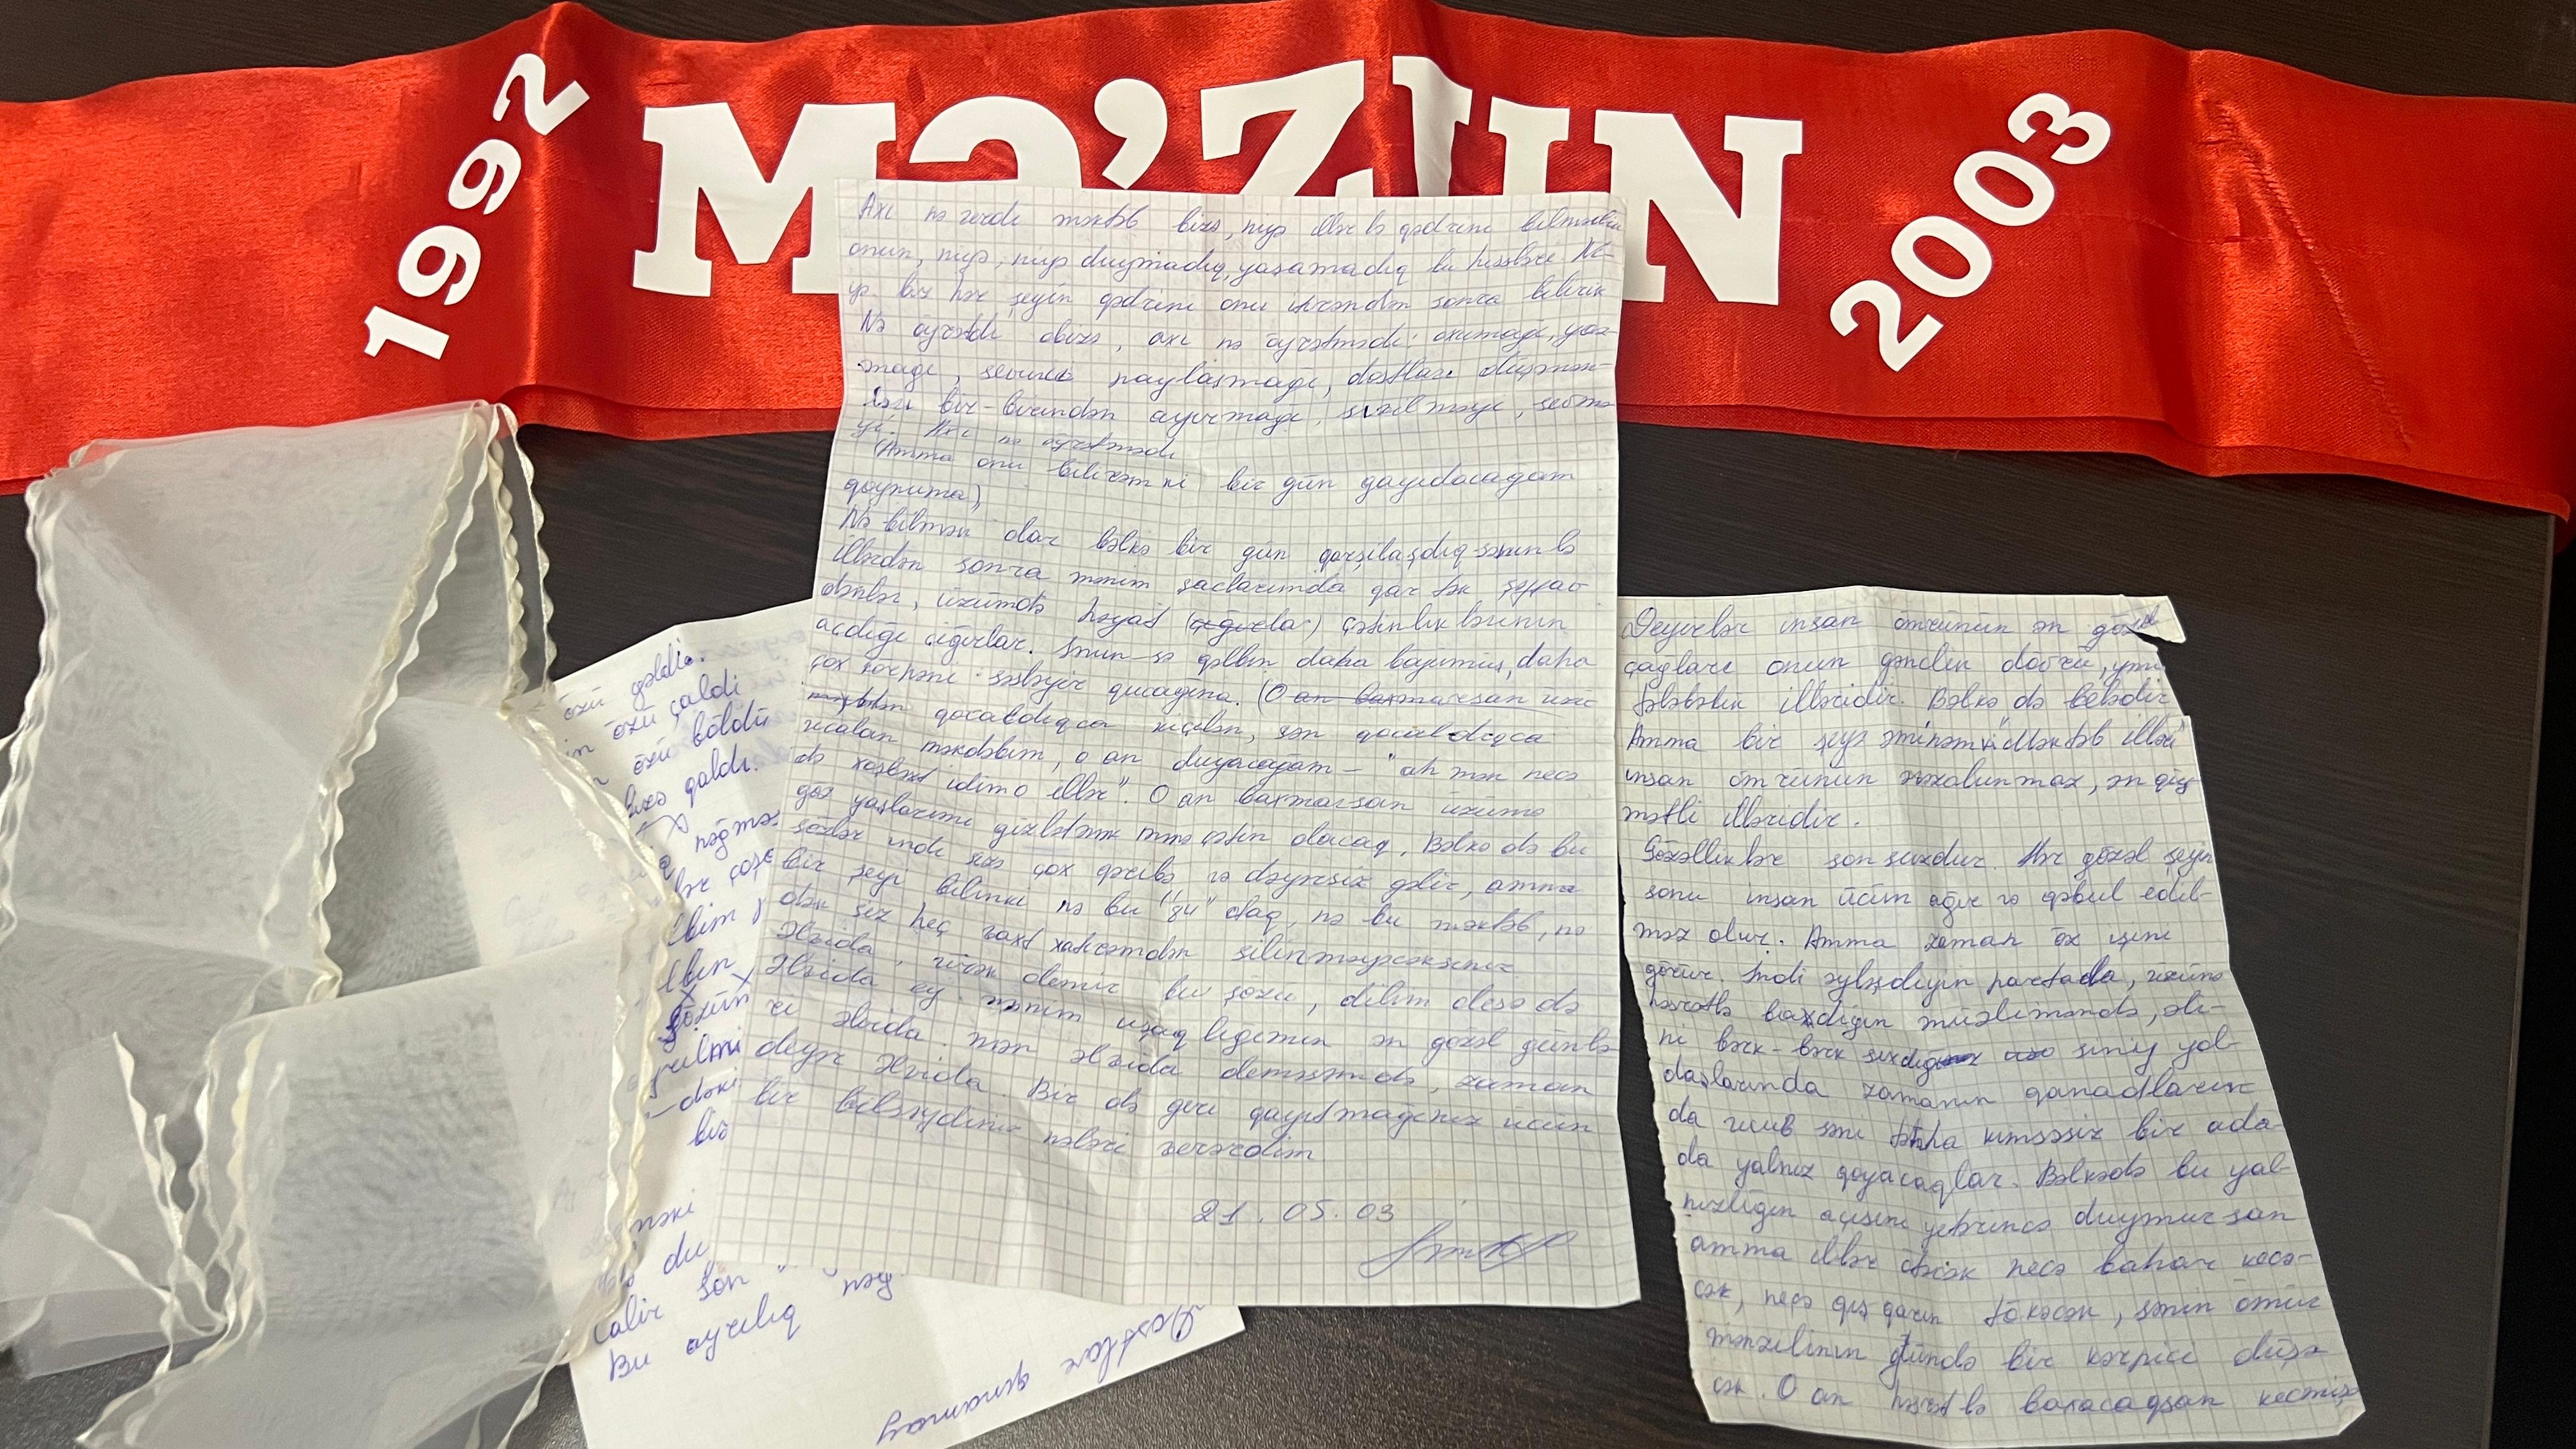 1992
MƏ'ZUN
2003
Axı nə verdi məktəb bizə, niyə illərlə qədrini bilmədik
onun, niyə, niyə duymadıq, yaşamadıq bu hissləri. Ni-
yə biz hər şeyin qədrini onu itirəndən sonra bilirik
Nə öyrətdi obizə, axı nə öyrətmədi: oxumağı, yaz-
mağı, sevinci paylaşmağı, dostları düşmən-
ləri bir-birindən ayırmağı, sızılmağı, sevmə-
yi. Axı nə öyrətmədi
(Amma onu bilirəm ki bir gün qayıdacağam
qoynuma)
Nə bilmək olar bəlkə bir gün qarşılaşdıq səninlə
illərdən sonra mənim saçlarımda qar tək şəffaf
dənlər, üzümdə həyat (cığırla) çətinliklərinin
açdığı cığırlar. Sənin sə qəlbin daha böyümüş, daha
çox körpəni səsləyir qucağına. (O an baxmarsan üzü
qocaldıqca kiçilən, sən qocaldıqca
ucalan məktəbim, o an duyacağam - "ah mən necə
də xoşbəxt idim o illər". O an baxmarsan üzümə
göz yaşlarımı gizlətmək mənə çətin olacaq. Bəlkə də bu
sözlər indi sizə çox qəribə və dəyərsiz gəlir, amma
bir şeyi bilinki nə bu "84" otaq, nə bu məktəb, nə
də siz heç vaxt xatirəmdən silinməyəcəksiniz
Əlvida, ürək demir bu sözü, dilim desə də
Əlvida ey mənim uşaqlığımın ən gözəl günlə-
ri əlvida. Mən əlvida deməsəmdə, zaman
deyir əlvida. Bir də geri qayıtmağınız üçün
bir bilsəydiniz nələri verərdim
21.05.03
Deyirlər insan ömrünün ən gözəl
çağları onun gənclik dövrü, yəni
tələbəlik illəridir. Bəlkə də belədir
Amma bir şeyə əminəm ki "Məktəb illəri"
insan ömrünün əvəzolunmaz, ən qiy-
mətli illəridir.
Gözəlliklər sonsuzdur. Hər gözəl şeyin
sonu insan üçün ağır və qəbul edil-
məz olur. Amma zaman öz işini
görür. İndi əyləşdiyin partada, üzünə
həsrətlə baxdığın müəllimində, əli-
ni bərk-bərk sıxdığın sinif yol-
daşlarında zamanın qanadların
da uçub səni tənha kimsəsiz bir ada-
da yalnız qoyacaqlar. Bəlkədə bu yal-
nızlığın acısını yetərincə duymursan
amma illər ötəcək necə bahar keçə-
cək, neçə qış qarın tökəcək, sənin ömür
mənzilinin gündə bir kərpici düşə
cək. O an həsrətlə baxacaqsan keçmişə
özü gəldi.
in özü çaldı
özü böldü
bizə qaldı.
nəğmə
lər coşə
lbim
lbin
gözün
gülmi
-dəki
biz
du
çalır son
Bu ayrılıq nəğ
Dostlar qınamay